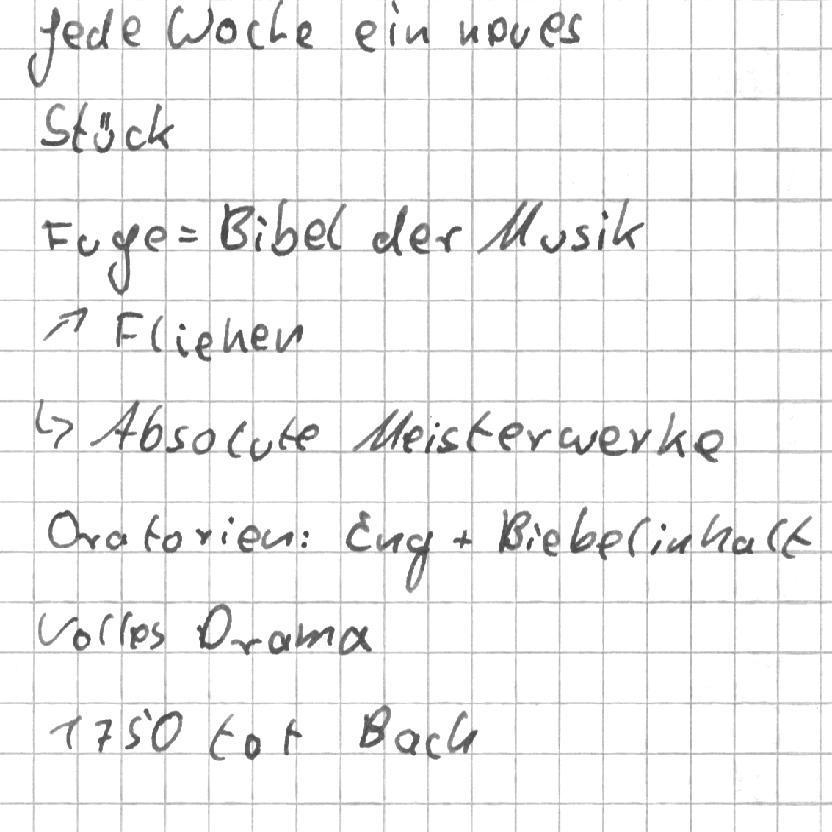 jede Woche ein neues
Stück
Fuge = Bibel der Musik
↗ Fliehen
↳ Absolute Meisterwerke
Oratorien: Eng + Biebelinhalt
Volles Drama
1750 tot Bach